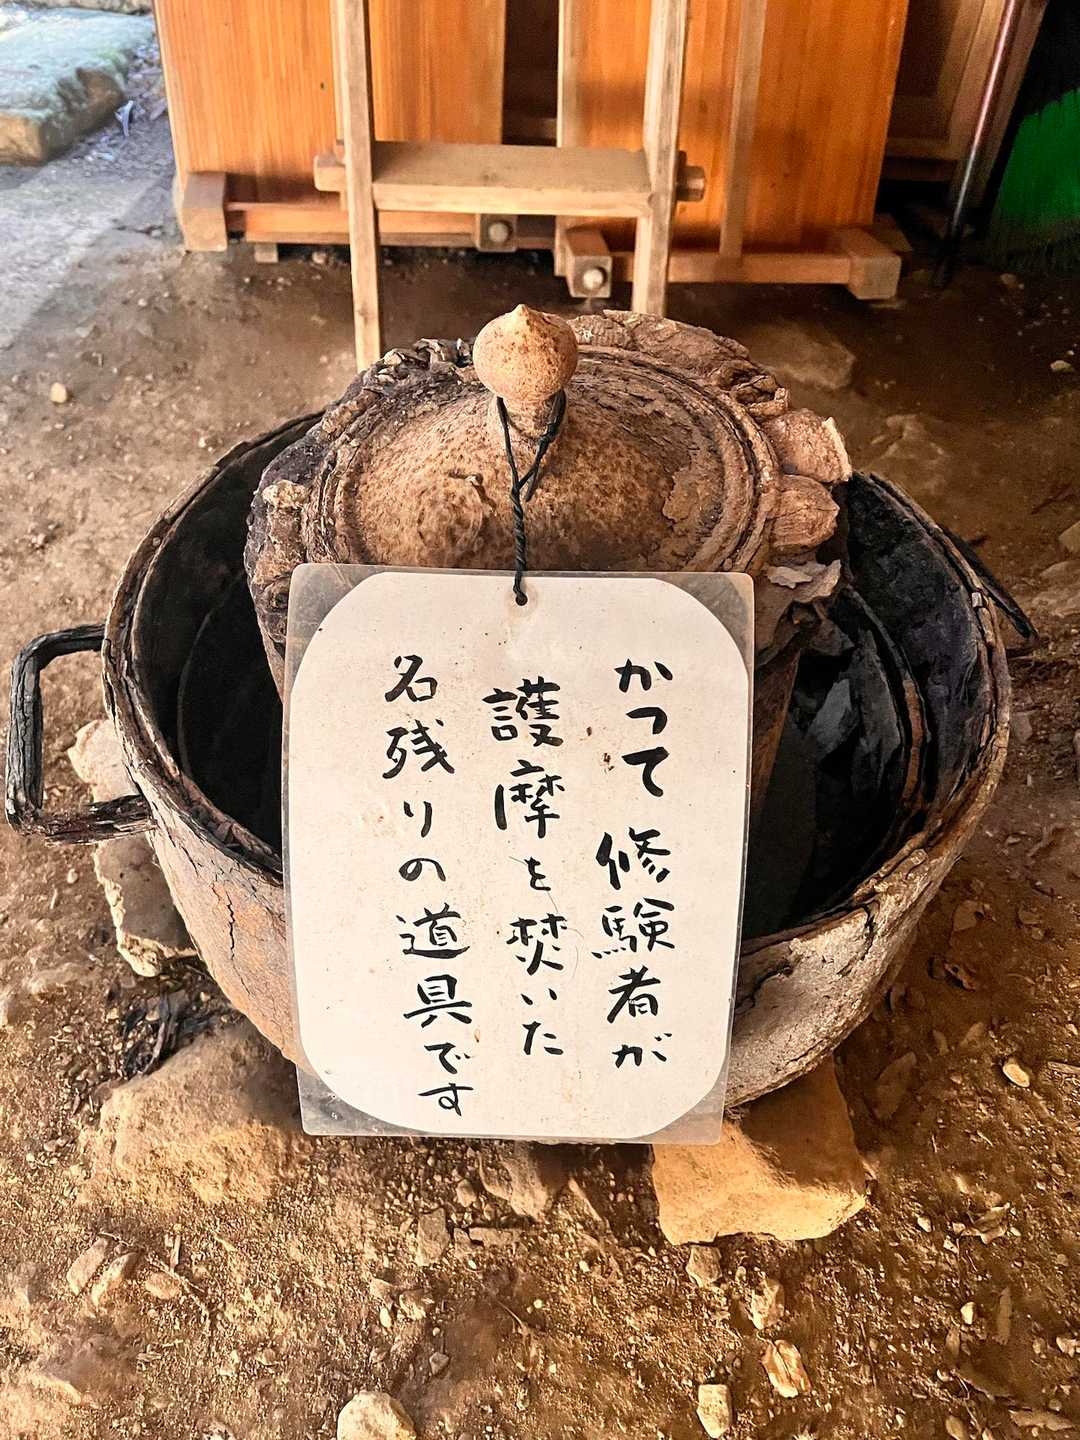 かつて修験者が
護摩を焚いた
名残りの道具です